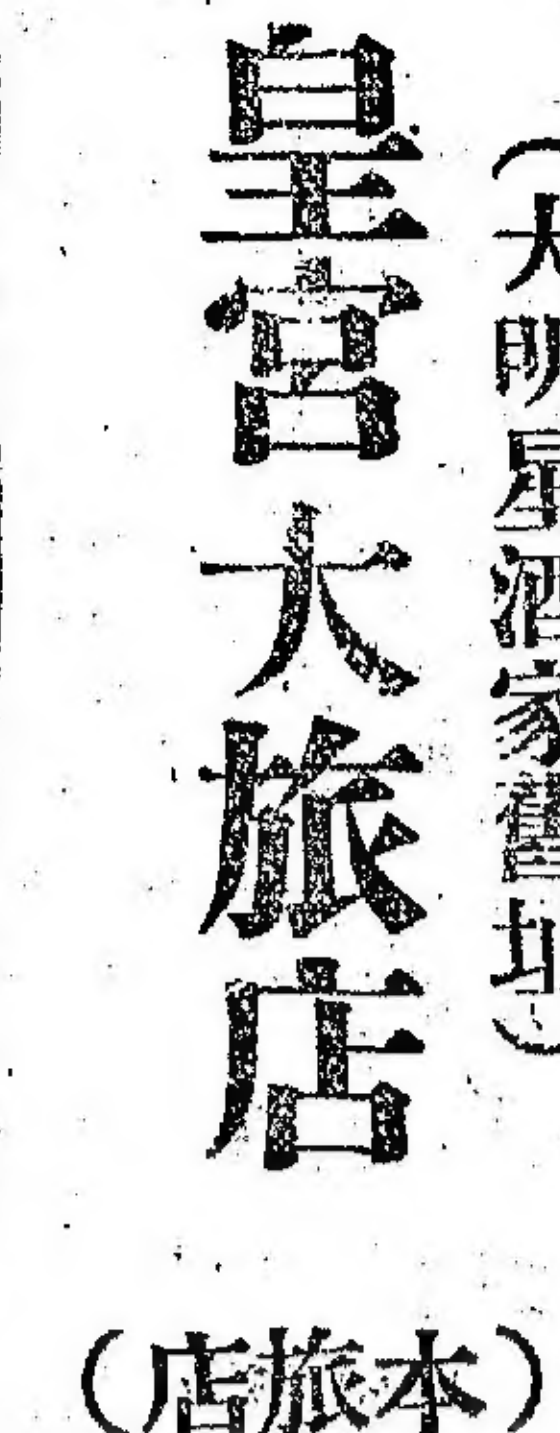 （大明星酒家舊址）
皇宮大旅店
（本旅店）